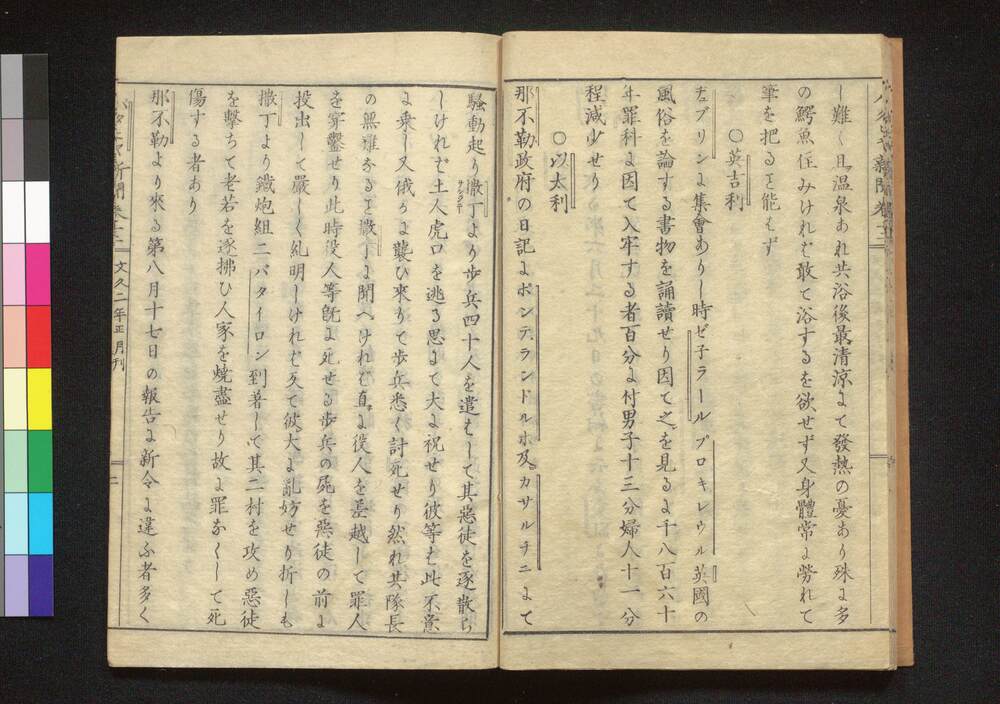 し難く且温泉あれ共浴後最清涼にて發熱の憂あり殊に多
の鰐魚住みけれは敢て浴するを欲せず又身體常に勞れて
筆を把るヿ能はず
〇英吉利
ヂュブリンに集會ありし時ゼ子ラールプロキレウル英國の
風俗を論する書物を誦讀せり因て之を見るに千八百六十
年罪科に因て入牢する者百分に付男子十三分婦人十一分
程減少せり
〇以太利
那不勒政府の日記にポンテランドルホ及カサルチニにて
騷動起り撒丁より歩兵四十人を遣はして其惡徒を逐散ら
しけれど土人虎口を逃る思にて大に祝せり彼等は此不意
に乘し又俄かに襲ひ來りて歩兵悉く討死せり然れ共隊長
の無難なるヿ撒丁に聞へけれは直に役人を差越して罪人
を穿鑿せり此時役人等既に死せる歩兵の屍を惡徒の前に
投出して嚴しく糺明しけれど反て彼大に亂妨せり折しも
撒丁より鐵炮組二バタイロン到著して其二村を攻め惡徒
を擊ちて老若を逐拂ひ人家を燒盡せり故に罪なくして死
傷する者あり
那不勒より來る第八月十七日の報告に新令に違ふ者多く
新聞卷十二 文久二年正月刊